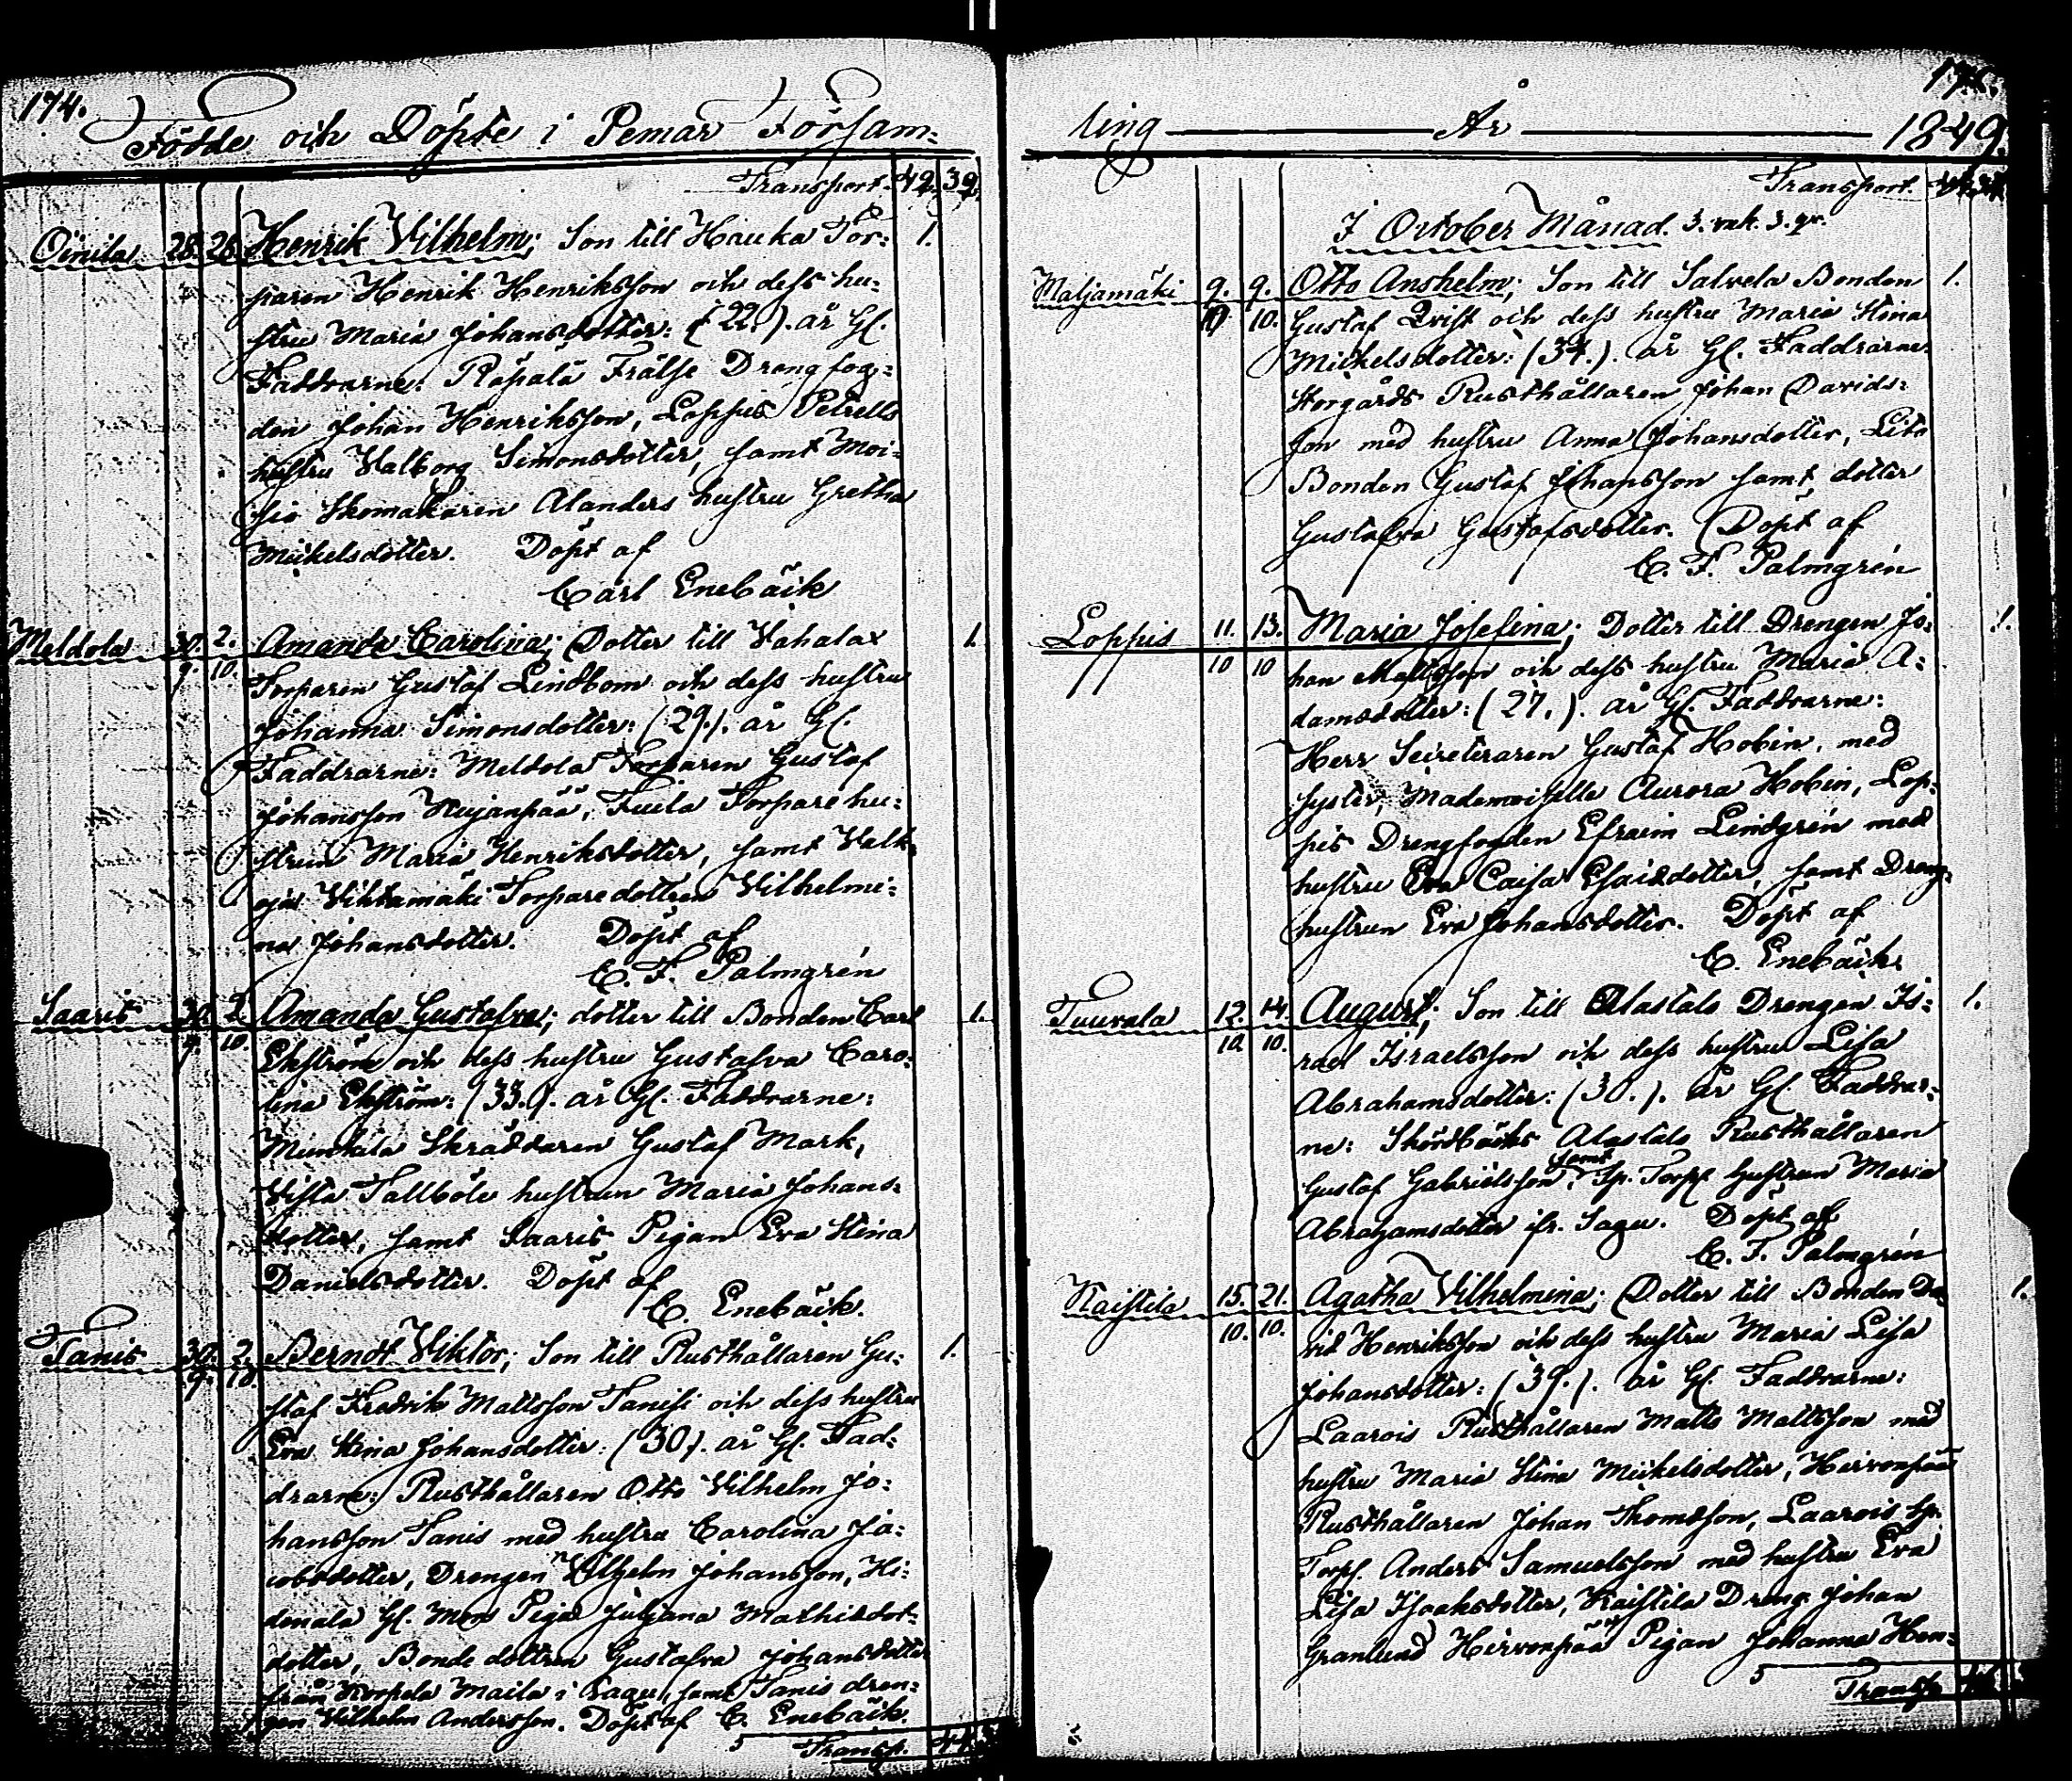 174.
Födde och Döpte i Pemar Försam=
Transport. 42. 39.
Oinila 28. 28. Henrik Vilhelm; Son till Hauka Tor= 1.
paren Henrik Henriksson och dess hu=
stru Maria Johansdotter: (22.). år Gl.
Faddrarne: Räpälä Frälse Drengfog=
den Johan Henriksson, Loppis Petrells
hustru Valborg Simonsdotter, samt Moi=
sio Skomakaren Alanders hustru Gretha
Mickelsdotter. Döpt af
Carl Enebäck
Meldola 30. 2. Amanda Carolina; Dotter till Vahalax 1.
9. 10. Torparen Gustaf Lindbom och dess hustru
Johanna Simonsdotter: (29.). år Gl.
Faddrarne: Meldola Torparen Gustaf
Johansson Nujanpää, Fuila Torpare hu=
strun Maria Henriksdotter, samt Valk=
oja Viktamäki Torparedottren Vilhelmi=
na Johansdotter. Döpt af
C. F. Palmgrén
Saaris 30. 2. Amanda Gustafva; dotter till Bonden Carl 1.
9. 10. Ekström och dess hustru Gustafva Caro=
lina Ekström: (33.). år Gl. Faddrarne:
Munkila Skräddaren Gustaf Mark,
Vista Tallböle hustrun Maria Johans=
dotter, samt Saaris Pigan Eva Stina
Danielsdotter. Döpt af
C. Enebäck.
Tanis 30. 2. Berndt Viktor; Son till Rusthållaren Gu= 1.
9. 10. staf Fredrik Mattsson Tanisi och dess hustru
Eva Stina Johansdotter: (30). år Gl. Fad=
drarne: Rusthållaren Otto Vilhelm Jo=
hansson Tanis med hustru Carolina Ja=
cobsdotter, Drengen Vilhelm Johansson, Hi=
donala Gl. Mons Piga Juljana Mathisdot=
dotter, Bonde dottren Gustafva Johansdotter
från Korpela Maila i Sagu, samt Tanis dren=
gen Vilhelm Andersson. Döpt af C. Enebäck.
5 Transp. 44.
175.
ling År 1849.
Transport.
I October Månad. 3. mk. 3. qv.
Maljamäki 9. 9. Otto Anshelm; Son till Salvela Bonden 1.
10 10. Gustaf Qvist och dess hustru Maria Stina
Mickelsdotter: (34.). år Gl. Faddrarne:
Storgårds Rusthållaren Johan Davids=
son med hustru Anna Johansdotter, Lito
Bonden Gustaf Johansson samt dotter
Gustafva Gustafsdotter. Döpt af
C. F. Palmgrén
Loppis 11. 13. Maria Josefina; Dotter till Drengen Jo= 1.
10 10 han Mattsson och dess hustru Maria A=
damsdotter: (27.). år Gl. Faddrarne:
Herr Secreteraren Gustaf Hobin, med
syster, Mademoiselle Aurora Hobin, Lop=
pis Drengfogden Efraim Lindgrén med
hustru Eva Caisa Esaisdotter, samt Dreng=
hustrun Eva Johansdotter. Döpt af
C. Enebäck.
Tuuvala 12. 14. August; Son till Alastalo Drengen Is= 1.
10. 10. rael Israelsson och dess hustru Lisa
Abrahamsdotter: (30.). år Gl. Faddrar=
ne: Skönbäcks Alastalo Rusthållaren
Gustaf Gabrielsson, samt Sp. Torps hustrun Maria
Abrahamsdotter ifr. Sagu. Döpt af
C. F. Palmgrén
Kaistila 15. 21. Agatha Vilhelmina; Dotter till Bonden Da= 1.
10. 10. vid Henriksson och dess hustru Maria Lisa
Johansdotter: (39.). år Gl. Faddrarne:
Laarois Rusthållaren Matts Mattsson med
hustru Maria Stina Mickelsdotter, Hirvonpää
Rusthållaren Johan Thomasson, Laarois Sp.
Torps. Anders Samuelsson med hustru Eva
Lisa Isaaksdotter, Kaistila Dreng Johan
Granlund Hirvonpää Pigan Johanna Hen=
5 Transp.